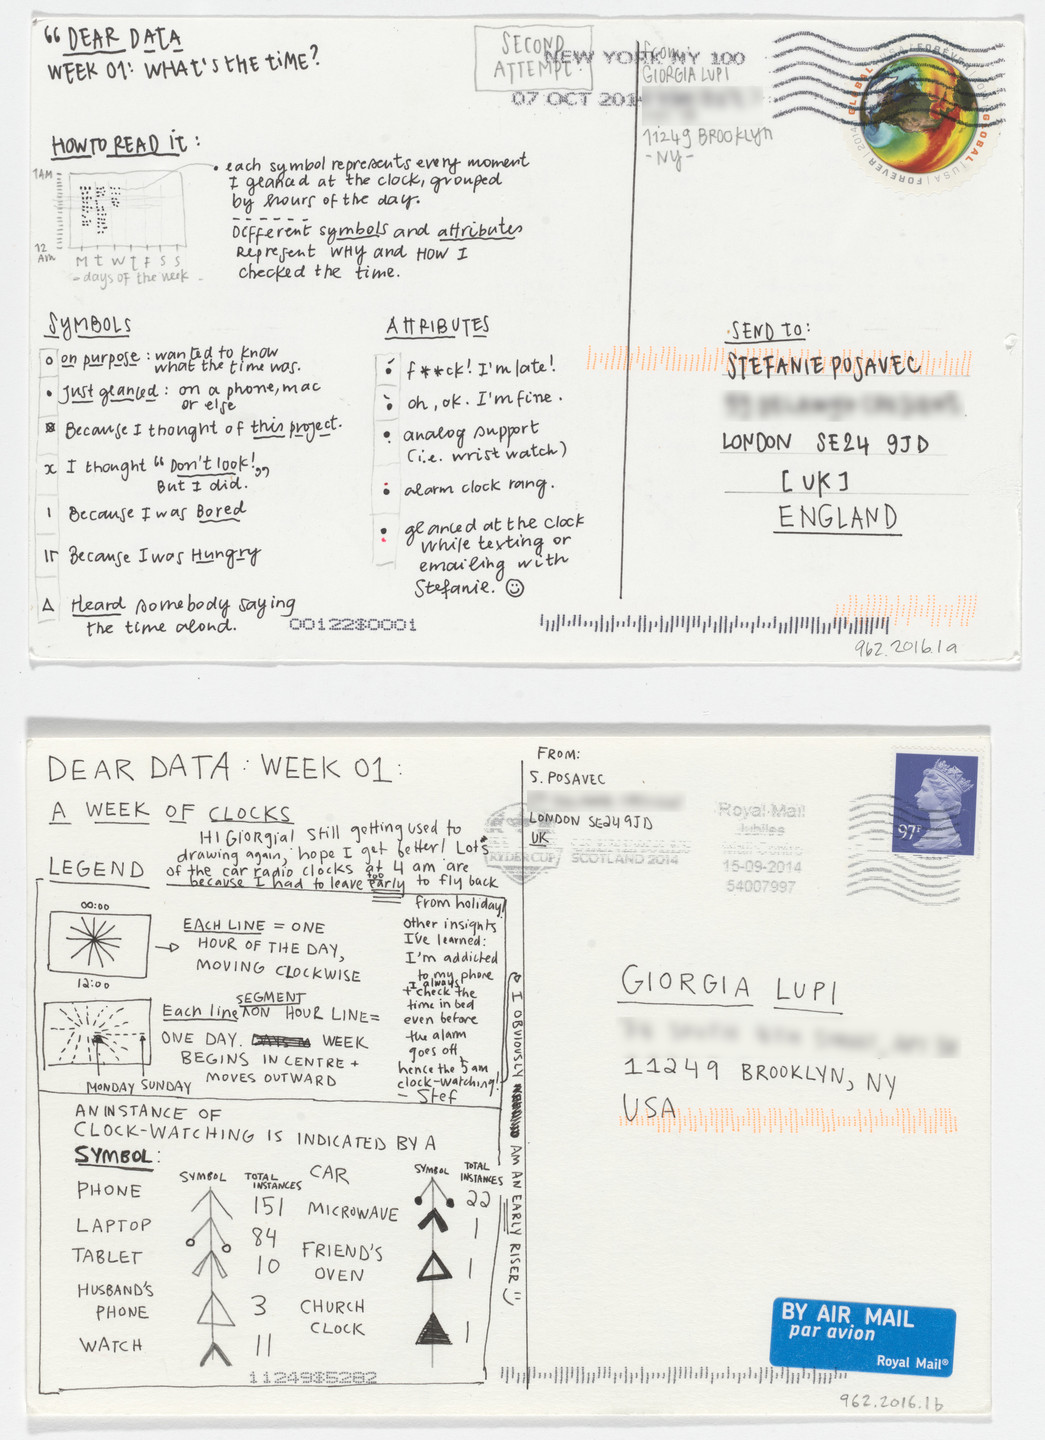 “ DEAR DATA
WEEK 01: WHAT'S the tiME?
SECOND
ATTEMPT!
NEW YORK NY 100
07 OCT 2014
from:
GIORGIA LUPI
11249 BROOKLYN
- NY -
GLOBAL USA FOREVER 2014
HOW TO READ it :
1AM
12
AM
M t W t f S S
- days of the week -
• each symbol represents every moment
I glanced at the clock, grouped
by hours of the day.
Different symbols and attributes
Represent WHY and HOW I
checked the time.
SYMBOLS
on purpose : wanted to know
what the time was.
Just glanced : on a phone, mac
or else
Because I thought of this project.
I thought “Don't look!„
But I did.
Because I was Bored
Because I was Hungry
Heard somebody saying
the time aloud.
ATTRIBUTES
f**ck! I'm late!
oh, ok. I'm fine.
analog support
(i.e. wrist watch)
alarm clock rang.
glanced at the clock
while texting or
emailing with
Stefanie. ☺
SEND TO:
STEFANIE POSAVEC
LONDON SE24 9JD
[UK]
ENGLAND
00122$0001
962.2016.1a
DEAR DATA : WEEK 01 :
A WEEK OF CLOCKS
Hi Giorgia! Still getting used to
drawing again, hope I get better! Lots
of the car radio clocks at 4 am are
because I had to leave too early to fly back
from holiday!
Other insights
I've learned:
I'm addicted
to my phone
+ I always check the
time in bed
even before
the alarm
goes off,
hence the 5am
clock-watching!
- Stef
↷ I OBVIOUSLY AM AN EARLY RISER :)
LEGEND
00:00
12:00
EACH LINE = ONE
HOUR OF THE DAY,
MOVING CLOCKWISE
MONDAY SUNDAY
Each line SEGMENT ON HOUR LINE =
ONE DAY. WEEK
BEGINS IN CENTRE +
MOVES OUTWARD
AN INSTANCE OF
CLOCK-WATCHING IS INDICATED BY A
SYMBOL:
SYMBOL TOTAL INSTANCES
PHONE 151
LAPTOP 84
TABLET 10
HUSBAND'S PHONE 3
WATCH 11
SYMBOL TOTAL INSTANCES
CAR 22
MICROWAVE 1
FRIEND'S OVEN 1
CHURCH CLOCK 1
11249$5282
FROM:
S. POSAVEC
LONDON SE24 9JD
UK
RYDER CUP
SCOTLAND 2014
Royal Mail
Jubilee
Mail Centre
15-09-2014
54007997
97P
GIORGIA LUPI
11249 BROOKLYN, NY
USA
BY AIR MAIL
par avion
Royal Mail®
962.2016.1b